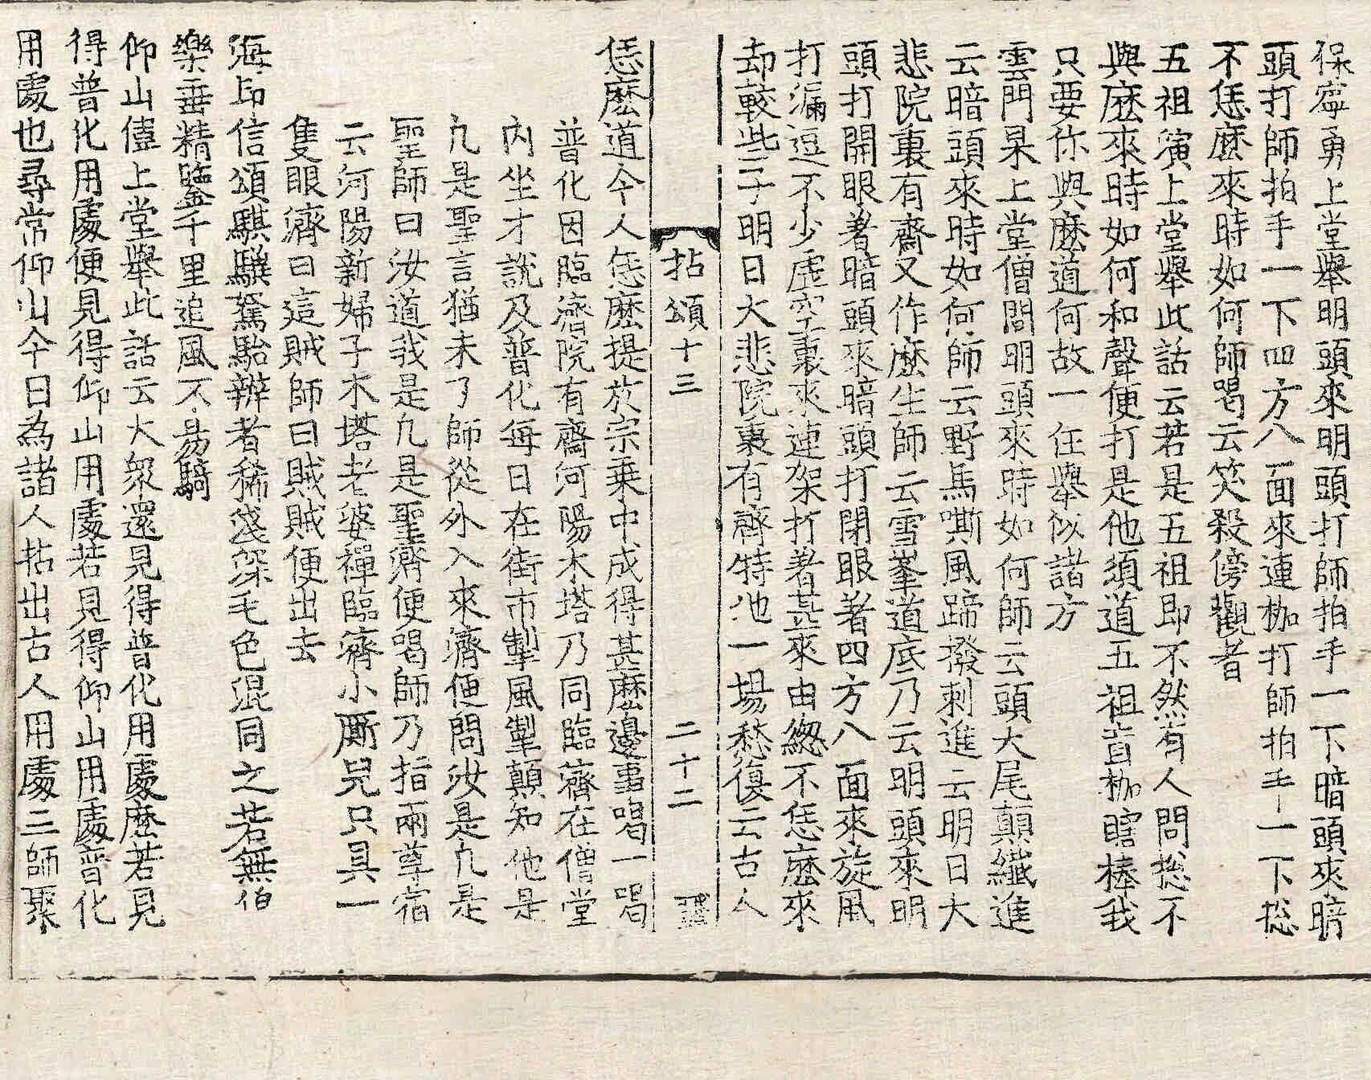 保寧勇上堂舉明頭來明頭打師拍手一下暗頭來暗
頭打師拍手一下四方八面來連枷打師拍手一下捴
不恁麽來時如何師喝云笑殺傍觀者
五祖演上堂舉此話云若是五祖即不然有人問捴不
與麽來時如何和聲便打是他須道五祖盲枷瞎棒我
只要你與麽道何故一任舉似諸方
雲門杲上堂僧問明頭來時如何師云頭大尾顛纖進
云暗頭來時如何師云野馬嘶風蹄撥剌進云明日大
悲院裏有齋又作麽生師云雪峯道底乃云明頭來明
頭打開眼著暗頭來暗頭打閉眼著四方八面來旋風
打漏逗不少虛空裏來連架打著甚來由緫不恁麽來
却較些子明日大悲院裏有齋特地一場愁復云古人
拈頌十三 二十二
恁麽道今人恁麽提放宗乗中成得甚麽邊事喝一喝
普化因臨濟院有齋河陽木塔乃同臨濟在僧堂
內坐才說及普化每日在街市掣風掣顛知他是
凢是聖言猶未了師從外入來濟便問汝是凢是
聖師曰汝道我是凢是聖濟便喝師乃指兩尊宿
云河陽新婦子木塔老婆禪臨濟小厮兒只具一
隻眼濟曰這賊師曰賊賊便出去
海印信頌騏驥駑駘辨者稀淺深毛色混同之若無伯
樂垂精鑒千里追風不易騎
仰山僼上堂舉此話云大衆還見得普化用處麽若見
得普化用處便見得仰山用處若見得仰山用處普化
用處也尋常仰山今日為諸人拈出古人用處三師聚